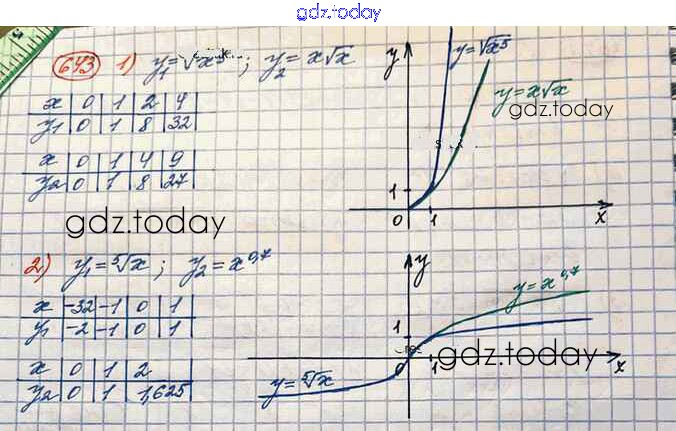 gdz.today
643 1) y₁ = √x⁵ ; y₂ = x√x
x | 0 | 1 | 2 | 4
y₁ | 0 | 1 | 8 | 32
x | 0 | 1 | 4 | 9
y₂ | 0 | 1 | 8 | 27
y
y = √x⁵
y = x√x
gdz.today
1
0 1 x
gdz.today
2) y₁ = ⁵√x ; y₂ = x^0,7
x | -32 | -1 | 0 | 1
y₁ | -2 | -1 | 0 | 1
x | 0 | 1 | 2
y₂ | 0 | 1 | 1,625
y
y = x^0,7
1
gdz.today
0 1 x
y = ⁵√x